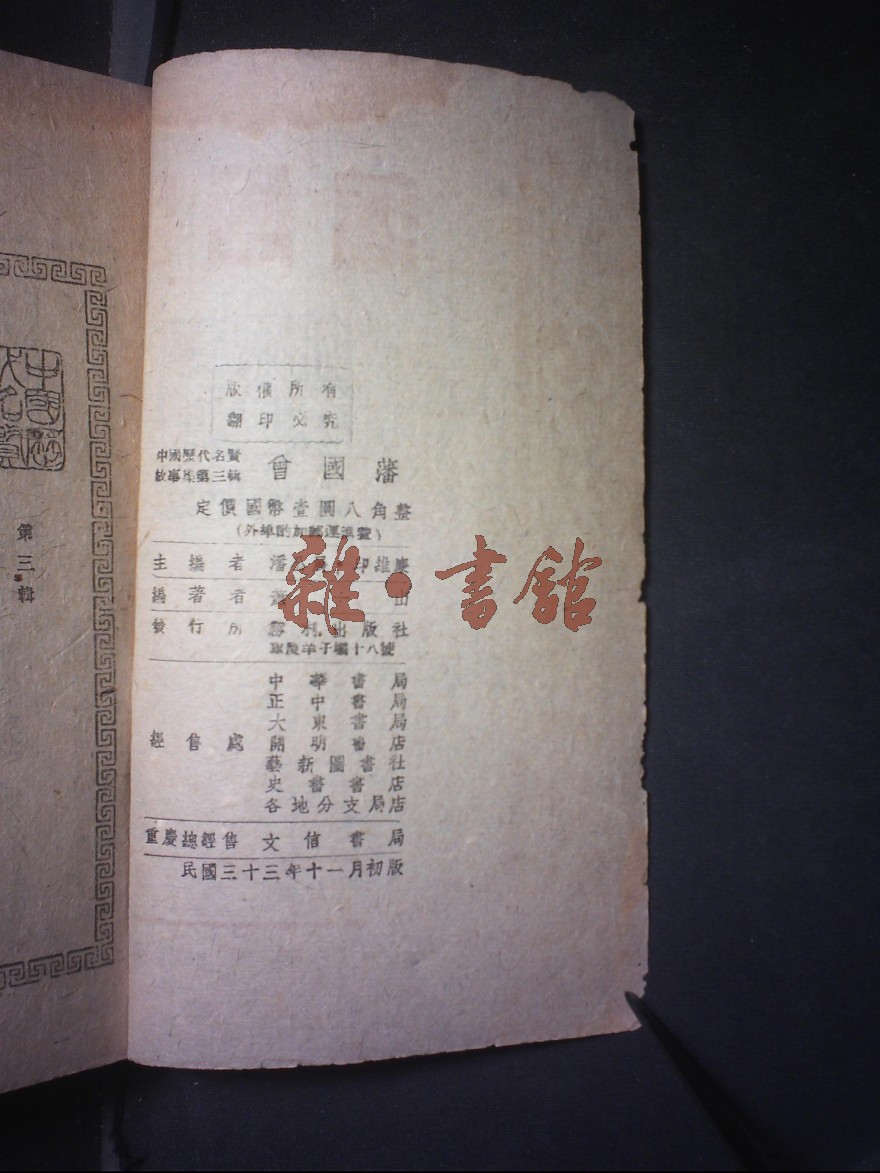 版權所有
翻印必究
中國歷代名賢
故事集第三輯
曾國藩
定價國幣壹圓八角整
(外埠酌加郵運滙費)
主編者 潘 印維廉
編著者 蕭 山
發行所 勝利出版社
羊子壩十八號
中華書局
正中書局
大東書局
經售處 開明書店
藝新圖書社
史書書店
各地分支局店
重慶總經售 文信書局
民國三十三年十一月初版
雜·書館
中國歷代名賢
第三輯